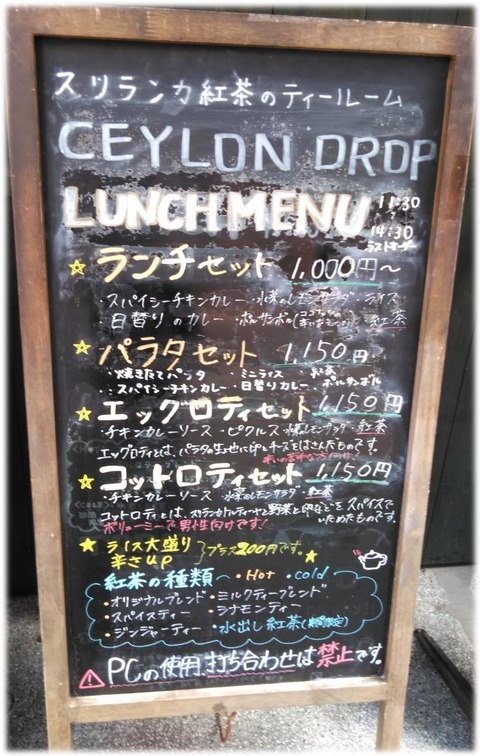 スリランカ紅茶のティールーム
CEYLON DROP
LUNCH MENU 11:30
14:30
ラストオーダー
☆ランチセット 1,000円〜
・スパイシーチキンカレー ・水菜のレモンサラダ ・ライス
・日替りのカレー ・ポルサンボル 紅茶
☆パラタセット 1,150円
・焼きたてパラタ ・ミニライス 紅茶
・スパイシーチキンカレー ・日替りカレー ポルサンボル
☆エッグロティセット 1,150円
・チキンカレーソース ・ピクルス ・水菜のレモンサラダ ・紅茶
エッグロティとは、パラタの生地に卵とチーズをはさんだものです。
辛いの苦手な方向け!
☆コットロティセット 1,150円
・チキンカレーソース ・水菜のレモンサラダ ・紅茶
コットロティとは、スリランカ 野菜と卵などをスパイスで
いためたものです。
ボリューミーで男性向けです!
★ライス大盛り
辛さUP
プラス200円です。★
紅茶の種類 ・Hot ・cold
・オリジナルブレンド ・ミルクティーブレンド
・スパイスティー ・シナモンティー
・ジンジャーティー ・水出し紅茶(期間限定)
⚠PCの使用、打ち合わせは禁止です。